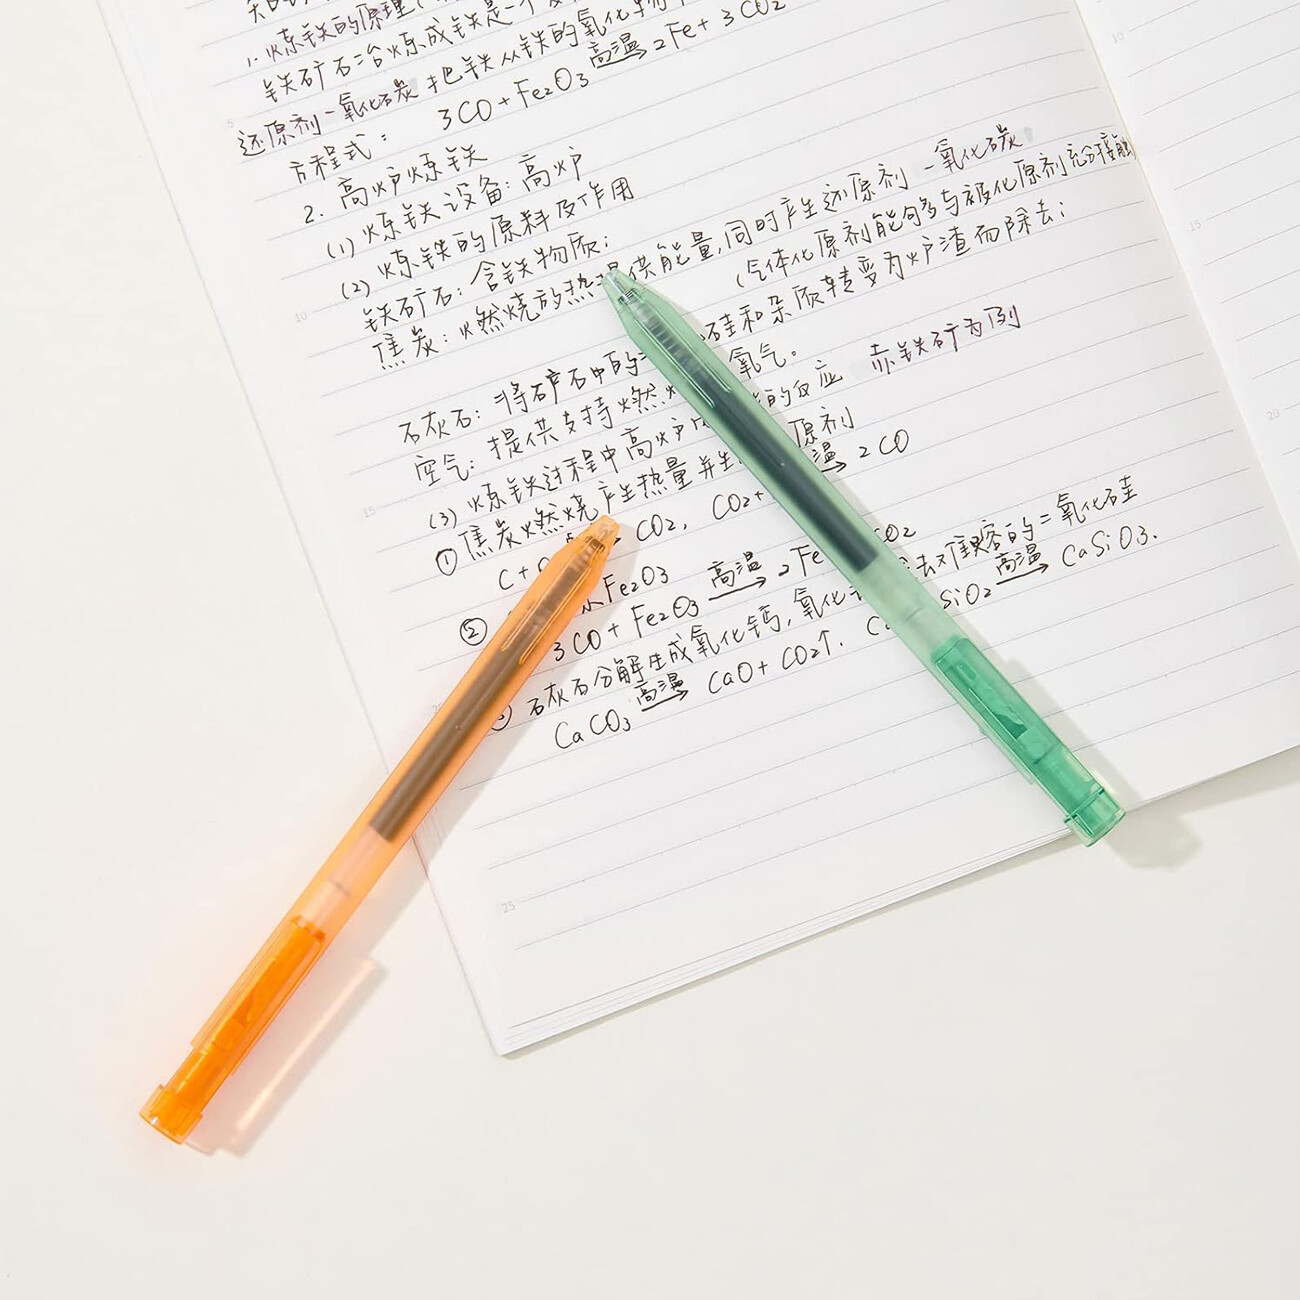 1. 炼铁的原理(
铁矿石冶炼成铁是一个
还原剂一氧化碳 把铁从铁的氧化物
方程式: 3CO + Fe2O3 高温 2Fe + 3CO2
2. 高炉炼铁
(1) 炼铁设备: 高炉
(2) 炼铁的原料及作用
铁矿石: 含铁物质;
焦炭: 燃烧放热 供能量, 同时产生还原剂 一氧化碳
(气体化原剂能够与被化原剂充分接触
石灰石: 将矿石中的 硅和杂质转变为炉渣而除去;
空气: 提供支持燃 氧气。
(3) 炼铁过程中高炉内 的反应 赤铁矿为例
① 焦炭燃烧产生热量并生 原剂
C + CO2, CO2 + 温 2CO
② Fe2O3
3CO + Fe2O3 高温 2Fe CO2
石灰石分解生成氧化钙, 氧化 去难熔的二氧化硅
CaCO3 高温 CaO + CO2↑. C SiO2 高温 CaSiO3.
5
10
15
25
10
15
20